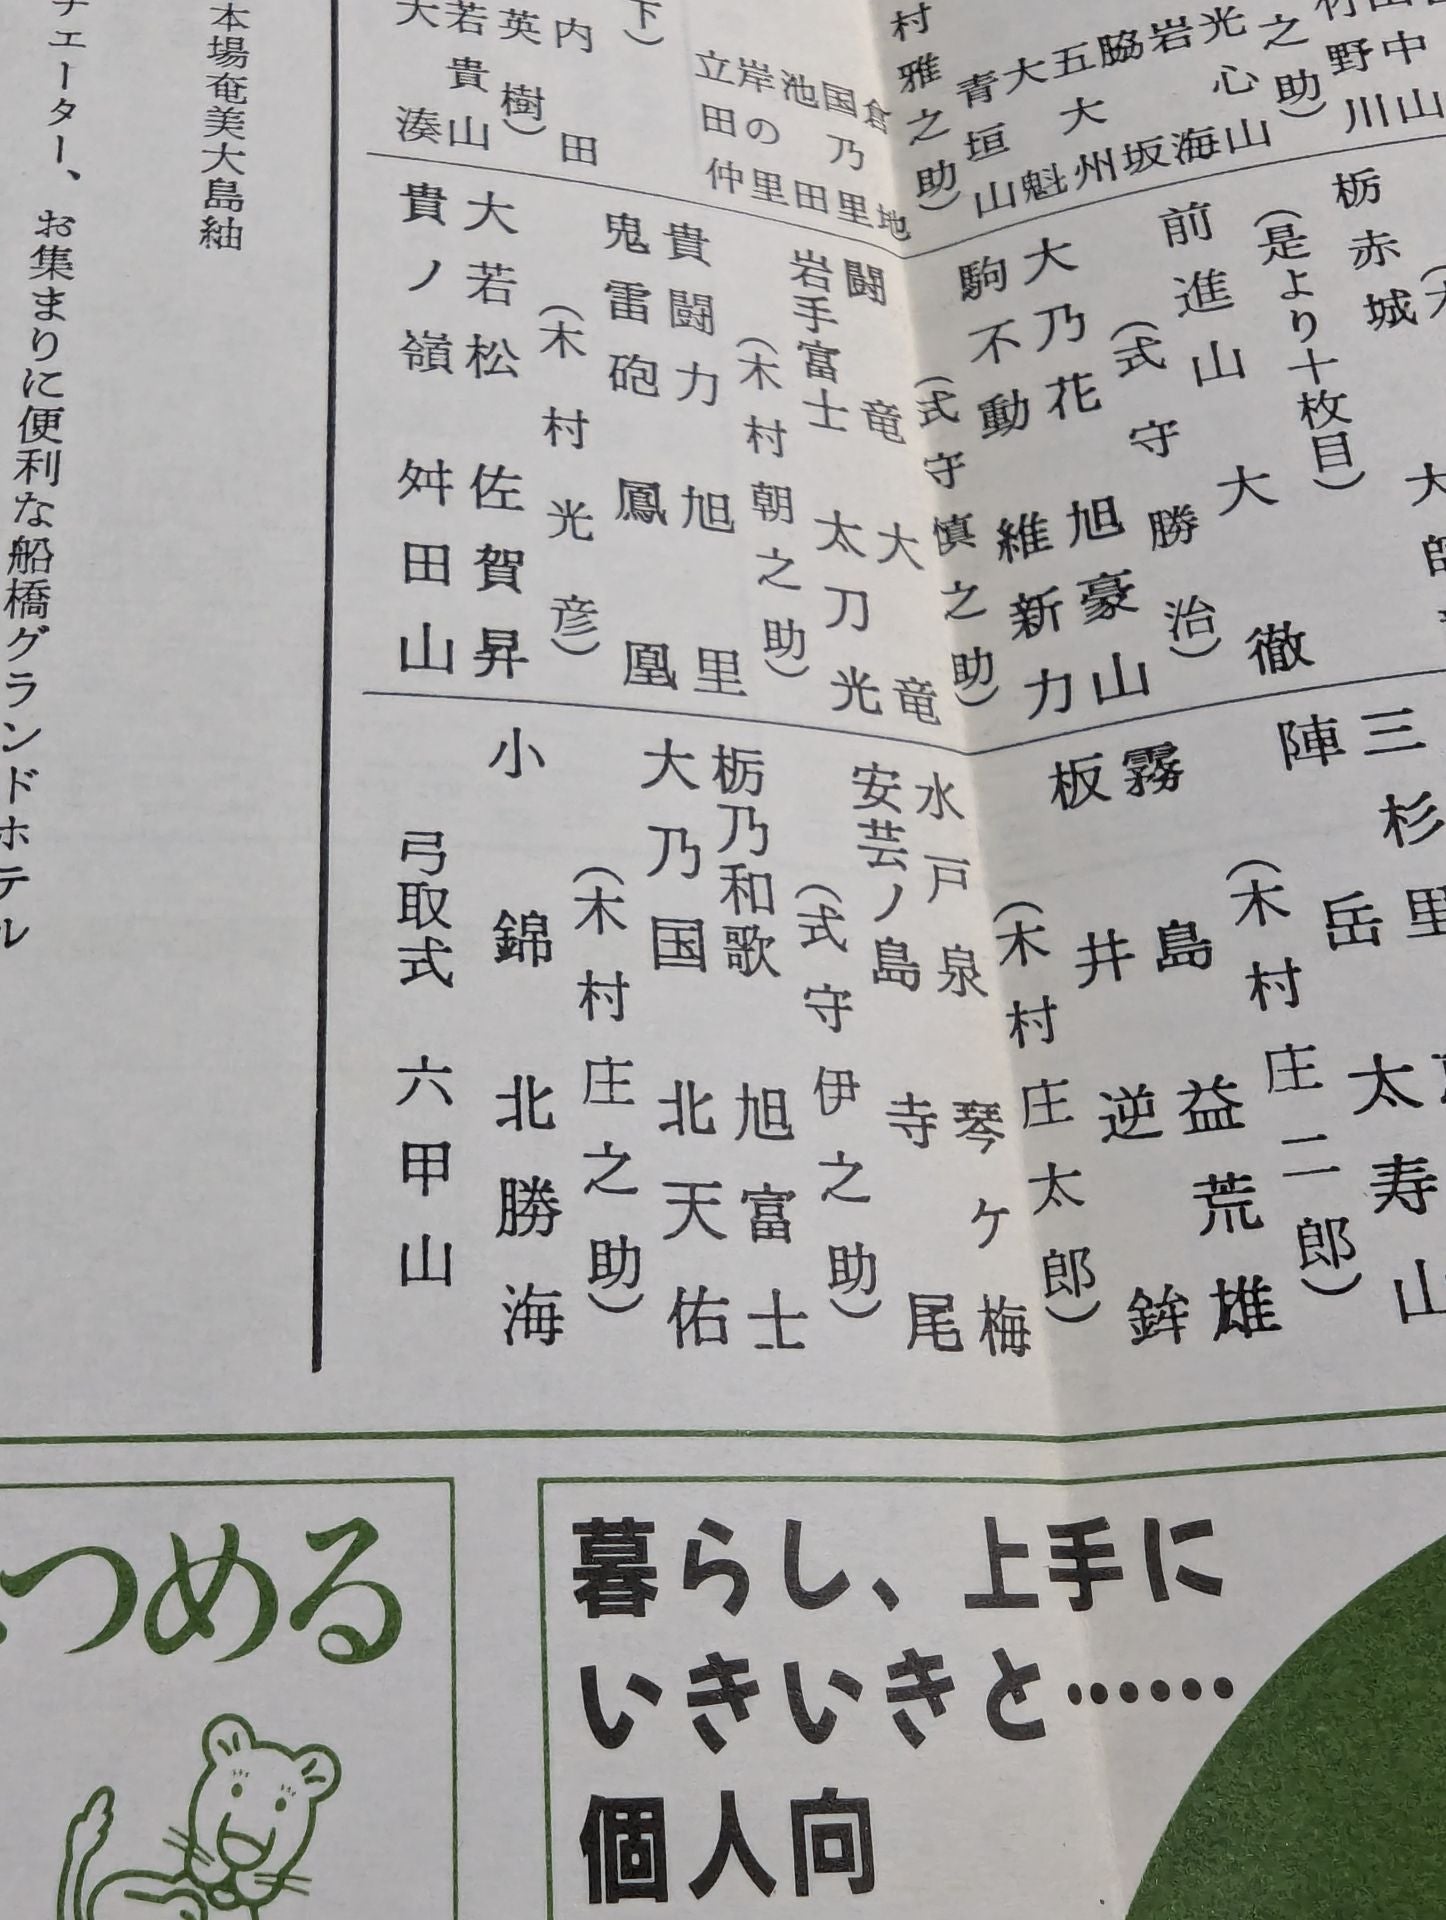 中山
野川
之助）
光心山
岩海
脇坂
五大州
大魁
青垣山
村雅之助）
倉地
国乃里
池田
岸の里
立田仲
下）
内田
英樹）
若貴山
大湊
栃赤城
（是より十枚目）
前進山 大徹
（式守勝治）
大乃花 旭豪山
駒不動 維新力
（式守慎之助）
闘竜 大竜
岩手富士 太刀光
（木村朝之助）
貴闘力 旭里
鬼雷砲 鳳凰
（木村光彦）
大若松 佐賀昇
貴ノ嶺 舛田山
三杉里
陣岳 太寿山
（木村庄二郎）
霧島 益荒雄
板井 逆鉾
（木村庄太郎）
水戸泉 琴ヶ梅
安芸ノ島 寺尾
（式守伊之助）
栃乃和歌 旭富士
大乃国 北天佑
（木村庄之助）
小錦 北勝海
弓取式 六甲山
本場奄美大島紬
チェーター、お集まりに便利な船橋グランドホテル
つめる
暮らし、上手に
いきいきと……
個人向